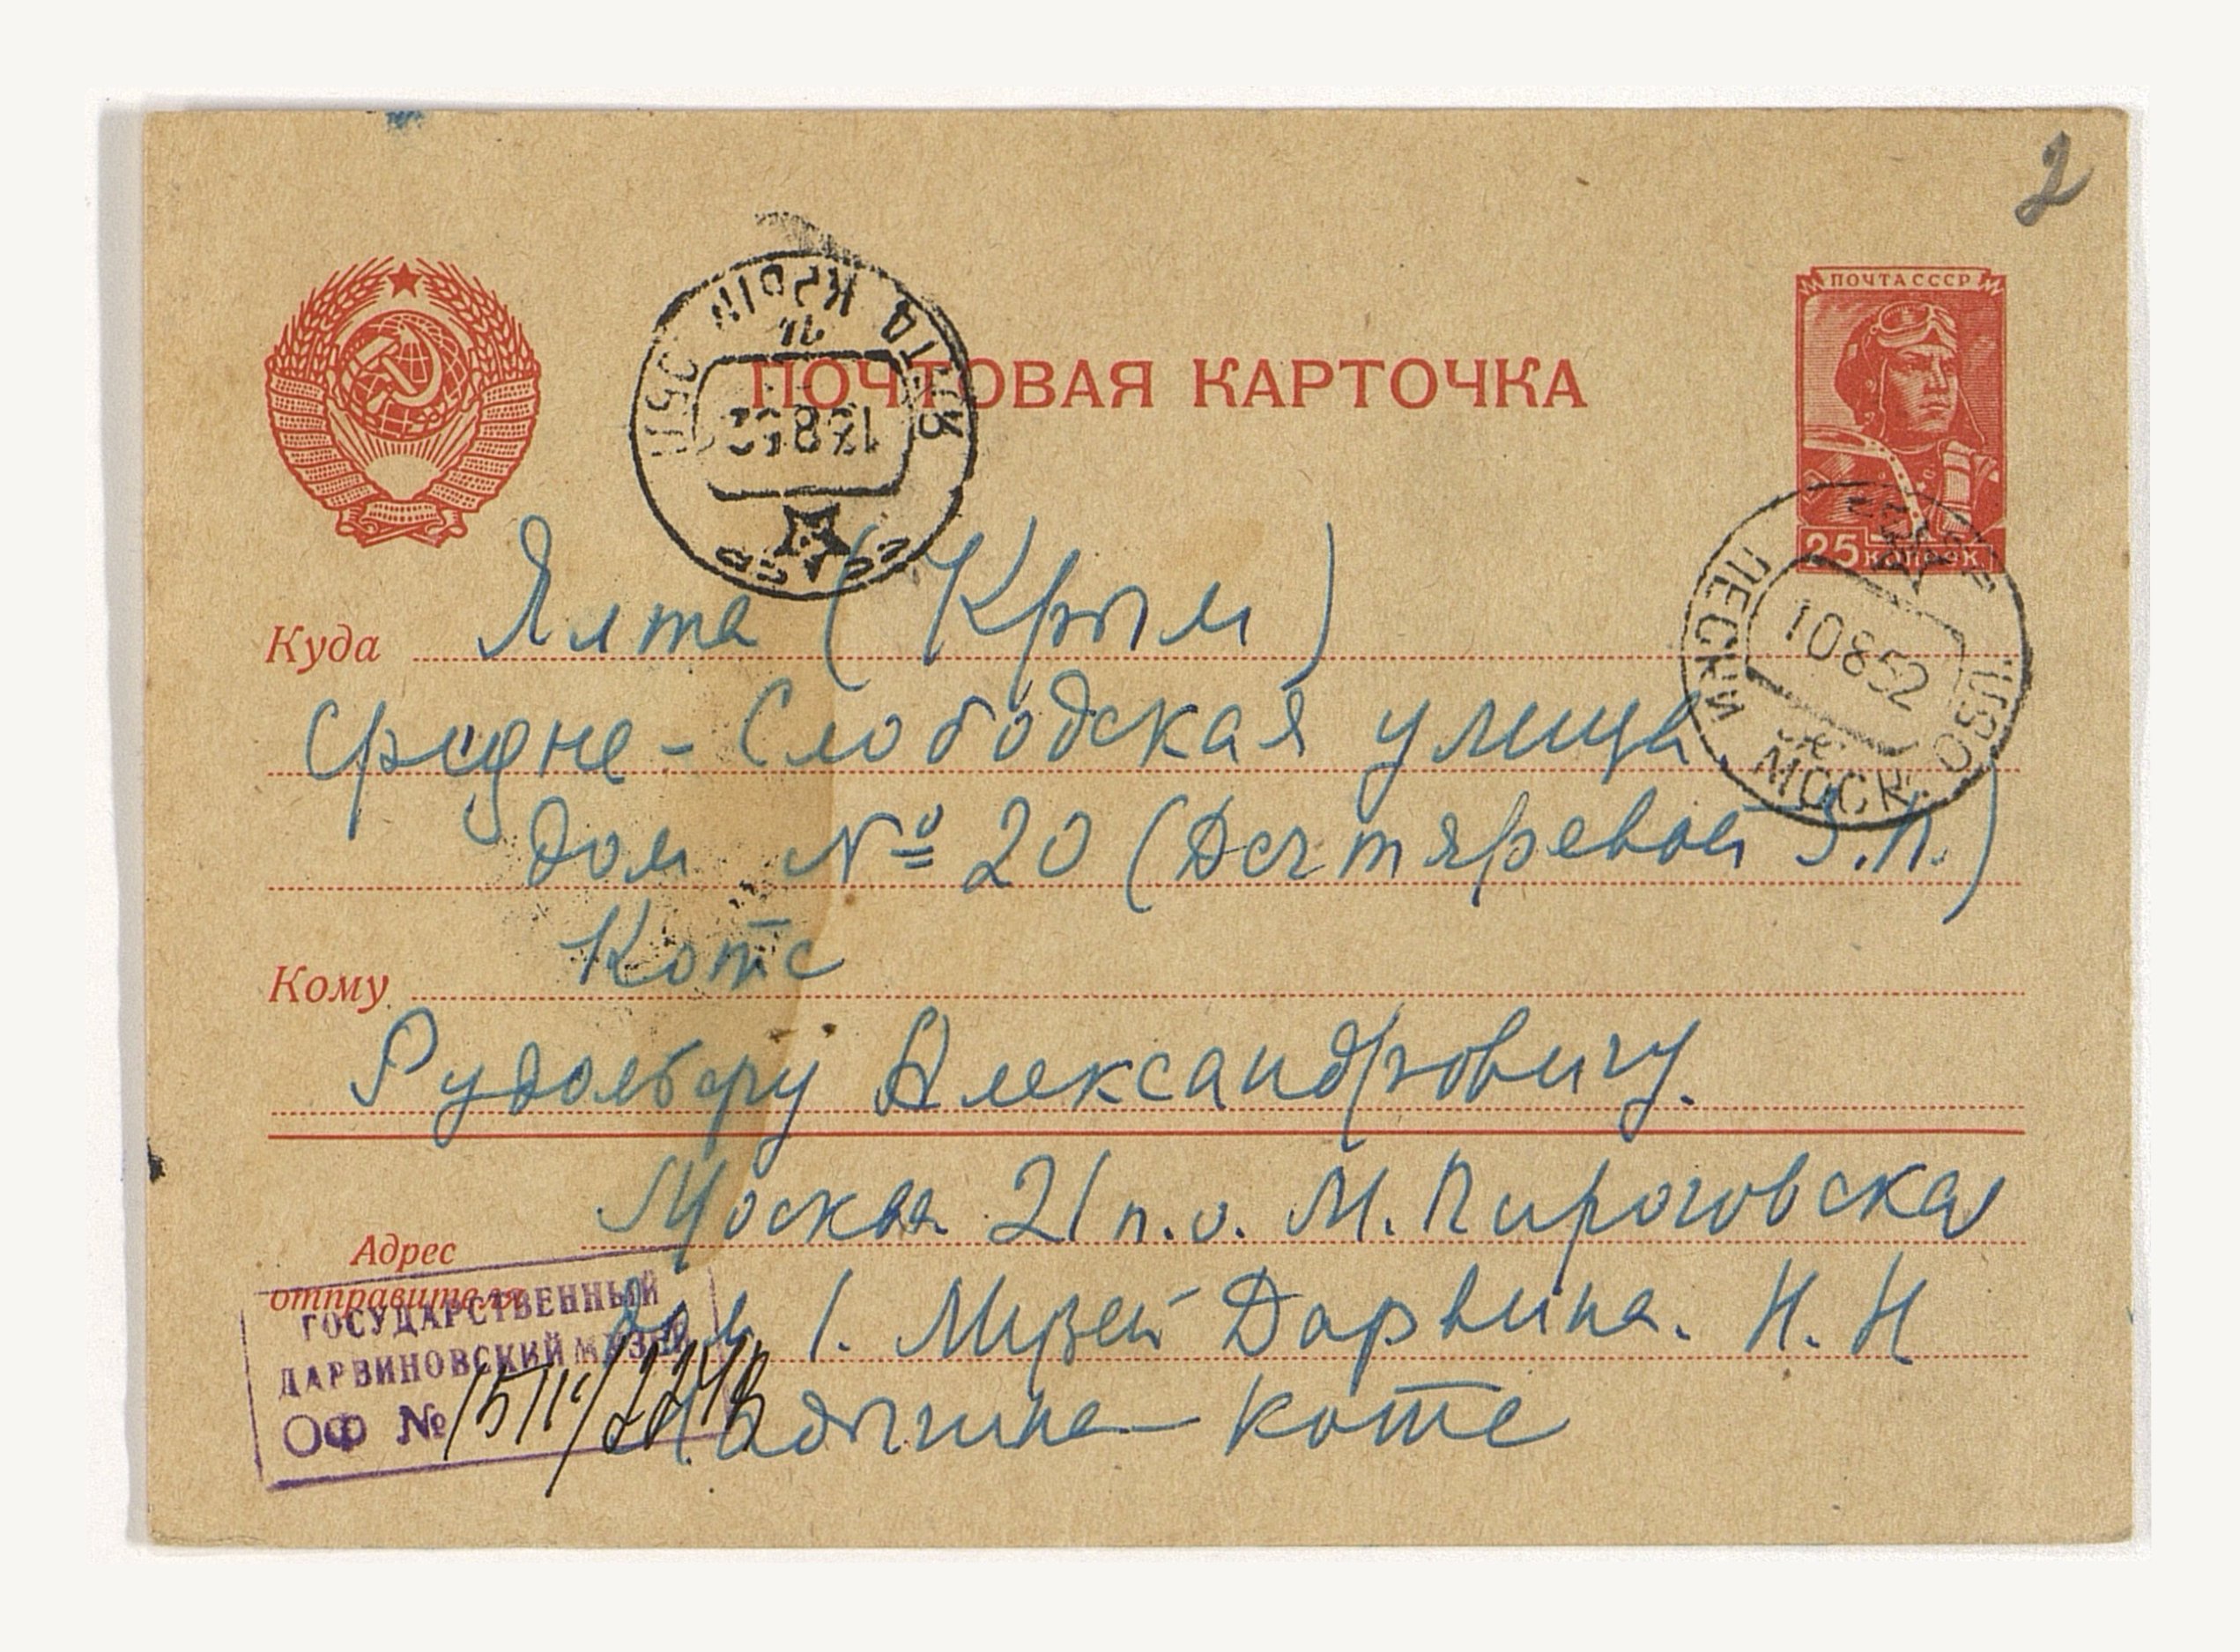 2
ПОЧТА СССР
ПОЧТОВАЯ КАРТОЧКА
ЯЛТА КРЫМ ОБЛ
13 8 52
СССР
25 КОПЕЕК
10 8 52
МОСК. ОБЛ
Куда Ялта (Крым)
Средне-Слободская улица
дом № 20 (Дегтяревой З.П.)
Кому Котс
Рудольфу Александровичу.
Москва 21 п.о. М. Пироговская
Адрес
отправителя
дом 1. Музей Дарвина. Н. Н
Ладыгина-Котс
ГОСУДАРСТВЕННЫЙ
ДАРВИНОВСКИЙ МУЗЕЙ
ОФ №